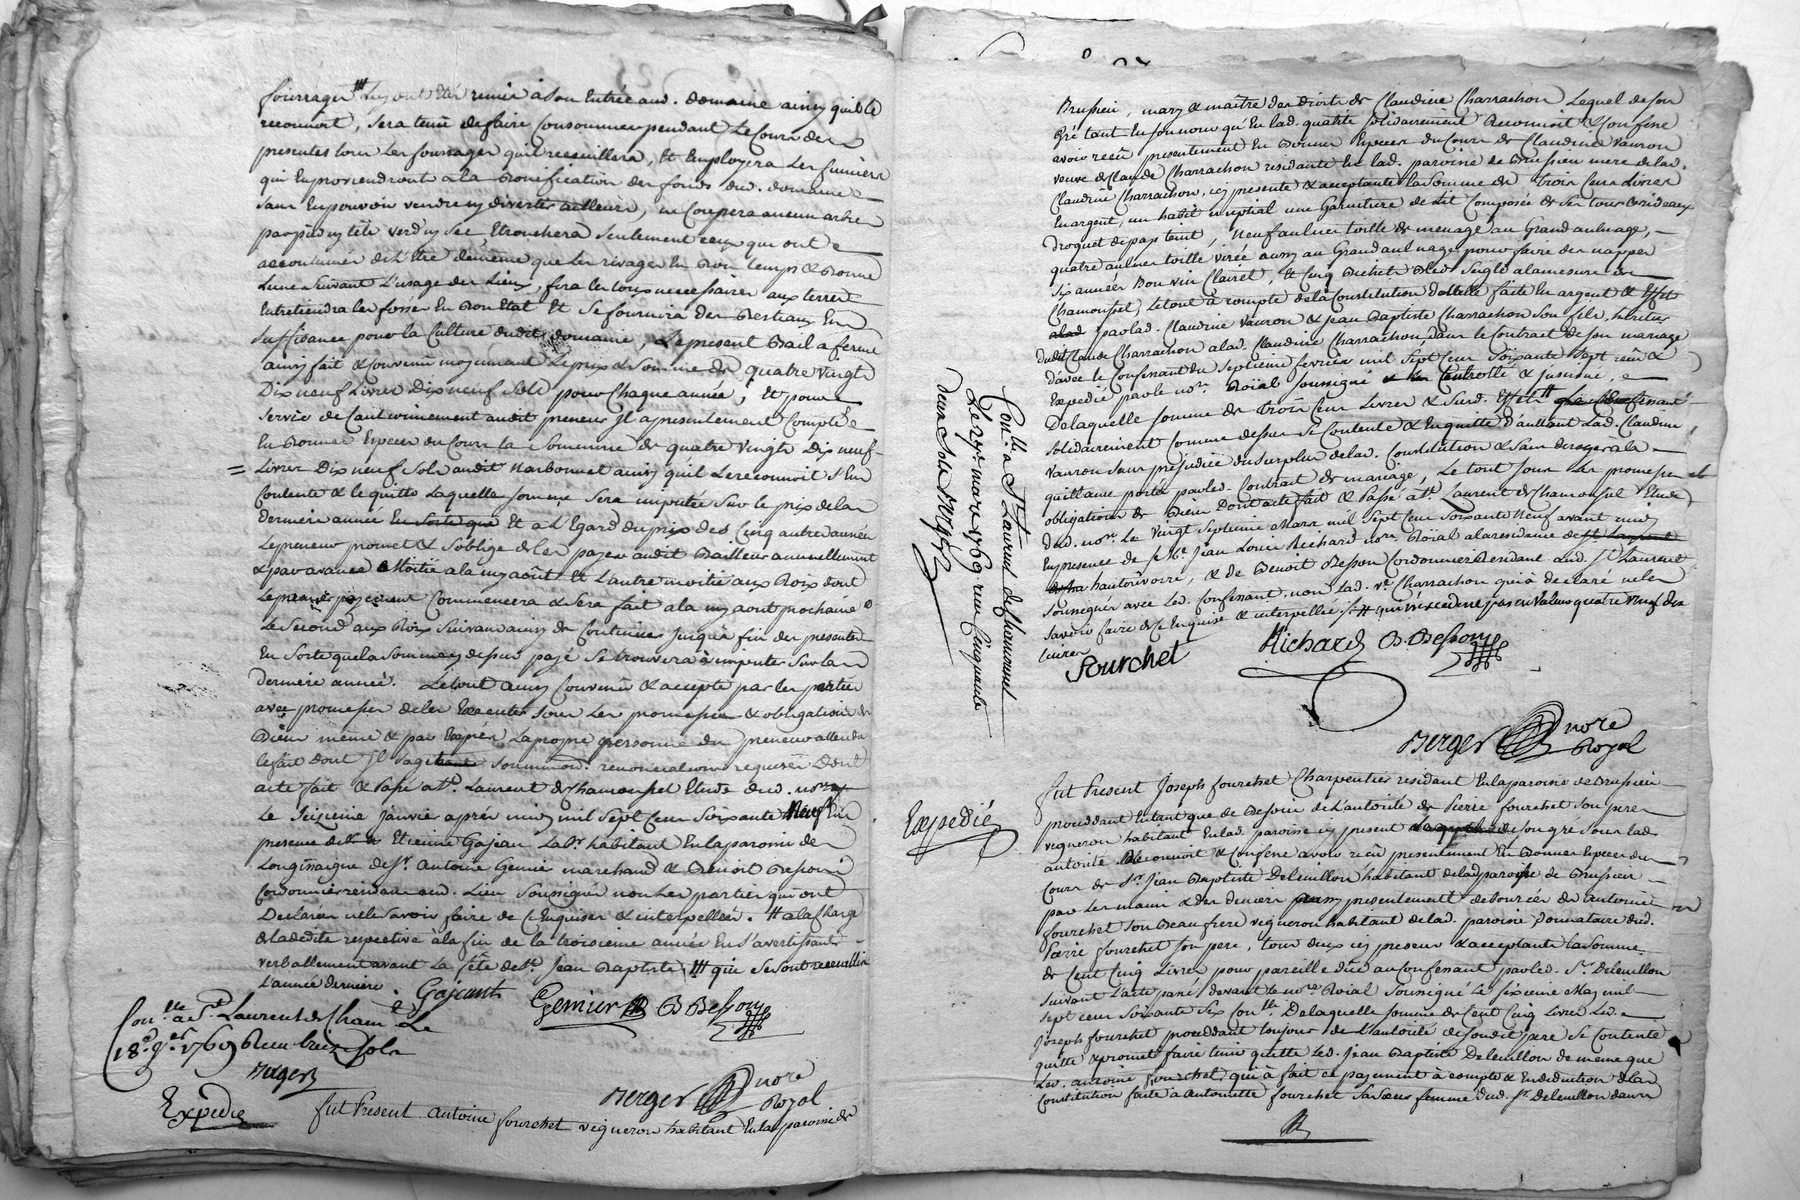 fourrages luy ont été remis à son Entrée aud. domaine ainsy quil le
reconnoit, sera tenu de faire Consommer pendant le Cours des
presentes tous les fourrages quil recueillera, Et Employera les fumiers
qui En proviendront a la Bonification des fonds dud. domaine
sans En pouvoir vendre ny divertir ailleurs, ne Coupera aucun arbre
par pied ny tête verd ny sec, Etronchera seulement ceux qui ont
accoutumés de L'être de même que les rivages En Bon temps & Bonne
Lune suivant L'usage des Lieux, fera les tous necessaires aux terres
Entretiendra les fossés En Bon Etat Et se fournira des Bestiaux En
suffisance pour la Culture dudit domaine, Le present Bail a ferme
ainsy fait & Convenu moyennant Le prix & Somme de quatre vingt
Dix neuf Livres Dix neuf Sols pour Chaque année, Et pour
servir de Cautionnement audit preneur Il a presentement Compté
En Bonnes Especes du Cours la Somme de quatre vingts Dix neuf
Livres Dix neuf Sols audit Narbonnet ainsy quil Le reconnoit S'En
Contente & le quitte Laquelle somme sera imputée Sur le prix de la
derniere année En sorte que Et à L'Egard du prix des Cinq autres années
Le preneur promet & s'oblige de les payer audit Bailleur annuellement
& par avance Moitié a la my août Et L'autre moitié aux Rois dont
Le premier payement Commencera & sera fait a la my aout prochaine
Le Second aux Rois suivans ainsy de Continuer Jusqu'à fin des presentes
En sorte que la somme cy dessus payé se trouvera à imputer Sur la
derniere année. Le tout ainsy Convenu & accepté par les parties
avec promesses de les Executer sous les promesses & obligations de
Biens même & par Exprés La propre personne du preneur attendu
le fait dont Il s'agit soummissions renonciations requises Dont
acte fait & Passé a St. Laurent de Chamousset Etude dud. nore
Le Seizieme Janvier après midy mil Sept Cent Soixante Neuf En
presence de Etienne Gajean Labr. habitant En la paroisse de
Longessaigne de Sr. Antoine Gemier marchand & Benoit Besson
Cordonnier residans aud. Lieu Soussignés non les parties qui ont
Declarés ne le Savoir faire de Ce Enquises & interpellées. # a la Charge
de la dedite respective à la fin de la troisieme année En s'avertissant
verballement avant la fête de St. Jean Baptiste ## qui se sont recueillis
L'année derniere. Gajeant Gemier B Besson
Con.lle a St. Laurent de Cham.t Le
18e. Jer. 1769 Reçu treize sols
Berger
Berger nore Royal
Expedié
fut Present Antoine fourchet vigneron habitant En la paroisse de
Brussieu, mary & maître des Droits de Claudine Charrachon Lequel de son
gré tant En son nom qu'En lad. qualité solidairement Reconnoit & Confesse
avoir reçû presentement En Bonnes Especes du Cours de Claudine Vauron
veuve de Claude Charrachon residante En lad. paroisse de Brussieu mere de lad.
Claudine Charrachon, icy presente & acceptante la Somme de Trois Cent Livres
En argent, un habit nuptial une Garniture de Lit Composée de Six tours de rideaux
Droguet de pays teint, Neuf aulnes toille de menage au Grand aulnage,
quatre aulnes toille virée aussy au Grand aulnage pour faire des nappes
six années Bon vin Clairet, Et Cinq Bichets Bled Seigle à la mesure de
Chamousset, Le tout à compte de la Constitution dotalle faite En argent & Effets
par lad. Claudine Vauron & Jean Baptiste Charrachon son fils, heritier
dudit Claude Charrachon a lad. Claudine Charrachon, dans le Contract de son mariage
d'avec le Confessant du Septieme fevrier mil Sept Cent Soixante Sept reçû &
Expedié par le nore. Roïal soussigné Controllé & Insinué,
De laquelle somme de trois Cent Livres & Surd. Effets # 
solidairement Comme dessus se Contente & En quitte d'autant Lad. Claudine
Vauron sans prejudice du surplus de lad. Constitution & sans deroger a la
quittance portée par led. Contract de mariage, Le tout sous les promesses et
obligations de Biens Dont acte fait & Passé à St. Laurent de Chamousset Etude
dud. nore. Le Vingt Septieme Mars mil Sept Cent Soixante Neuf avant midy
En presence de Me. Jean Louis Richard nore. Roïal à la residence de
hauterivoire, & de Benoit Besson Cordonnier Residant aud. St. Laurent
Soussignés avec Led. Confessant non lad. ve. Charrachon qui à declaré ne le
savoir faire de Ce Enquise & interpellée # qui n'excedent pas en Valeur quatre vingt dix
livres
fourchet Richard B. Besson
Berger nore Royal
Con.lle a St. Laurent de Chamousset
Le 27e. mars 1769 reçu Cinquante
deux Sols Berger
Expedié
fut Present Joseph fourchet Charpentier residant En la paroisse de Brussieu
procedant En tant que de Besoin de L'autorité de Pierre fourchet son pere
vigneron habitant En lad. paroisse icy present de son gré sous lad.
autorité Reconnoit & Confesse avoir reçû presentement En Bonnes Especes du
Cours de Sr. Jean Baptiste Deleullion habitant de lad. paroisse de Brussieu
par les mains & des deniers presentement deboursés de Antoine
fourchet son Beaufrere vigneron habitant de lad. paroisse, Donnataire dud.
Pierre fourchet son pere, tous deux icy presens & acceptants la Somme
de Cent Cinq Livres pour pareille dûe au Confessant par led. Sr. Deleullion
suivant L'acte passé devant le nore. Roïal Soussigné Le sixieme May mil
sept cent soixante six Con.lle. De laquelle somme de Cent Cinq Livres Led.
Joseph fourchet procedant toujours de L'autorité de sondit pere se Contente
quitte & promet faire tenir quitte Led. Jean Baptiste Deleullion de même que
Led. antoine fourchet, qui à fait ce payement à compte & En deduction de la
Constitution faite à Antoinette fourchet sa soeur femme dud. Sr. Deleullion dans